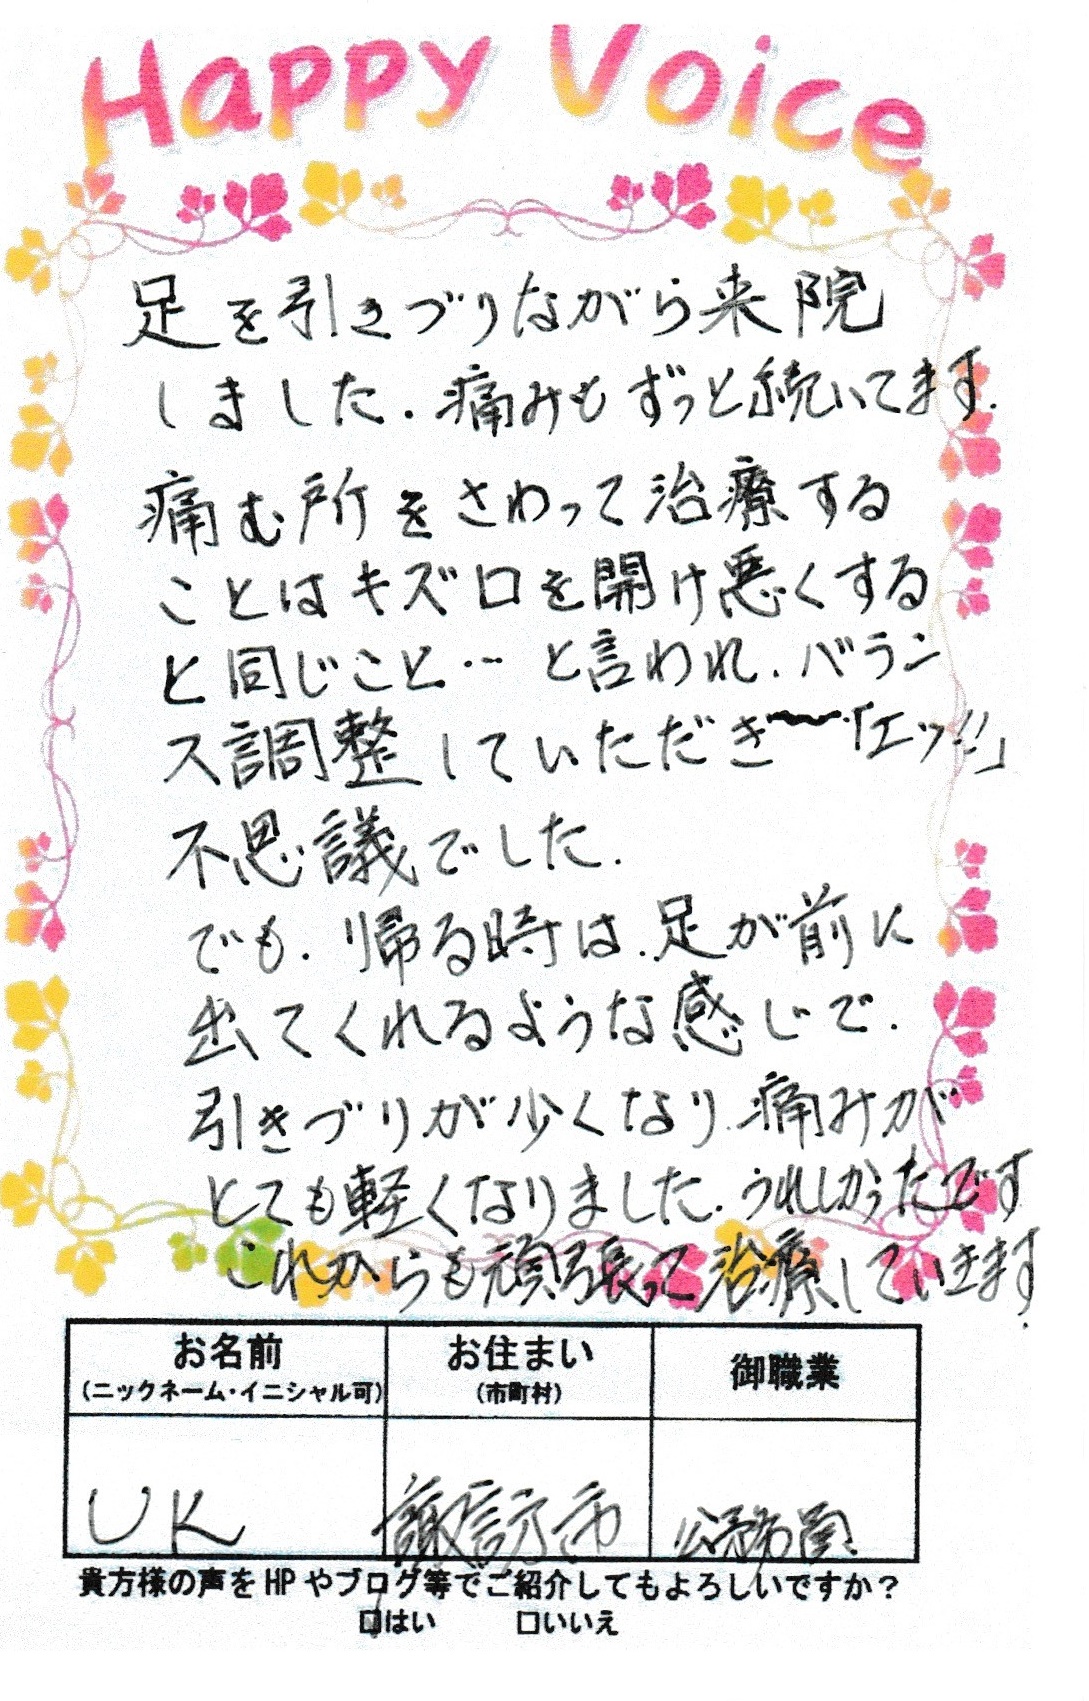 Happy Voice
足を引きづりながら来院
しました.痛みもずっと続いてます.
痛む所をさわって治療する
ことはキズ口を開け悪くする
と同じこと… と言われ.バラン
ス調整していただき〜「エッ!!」
不思議でした.
でも.帰る時は.足が前に
出てくれるような感じで.
引きづりが少くなり.痛みが
とても軽くなりました.うれしかったです
これからも頑張って治療していきます.
お名前 お住まい 御職業
(ニックネーム・イニシャル可) (市町村)
UK 諏訪市 公務員
貴方様の声をHPやブログ等でご紹介してもよろしいですか?
☑はい □いいえ